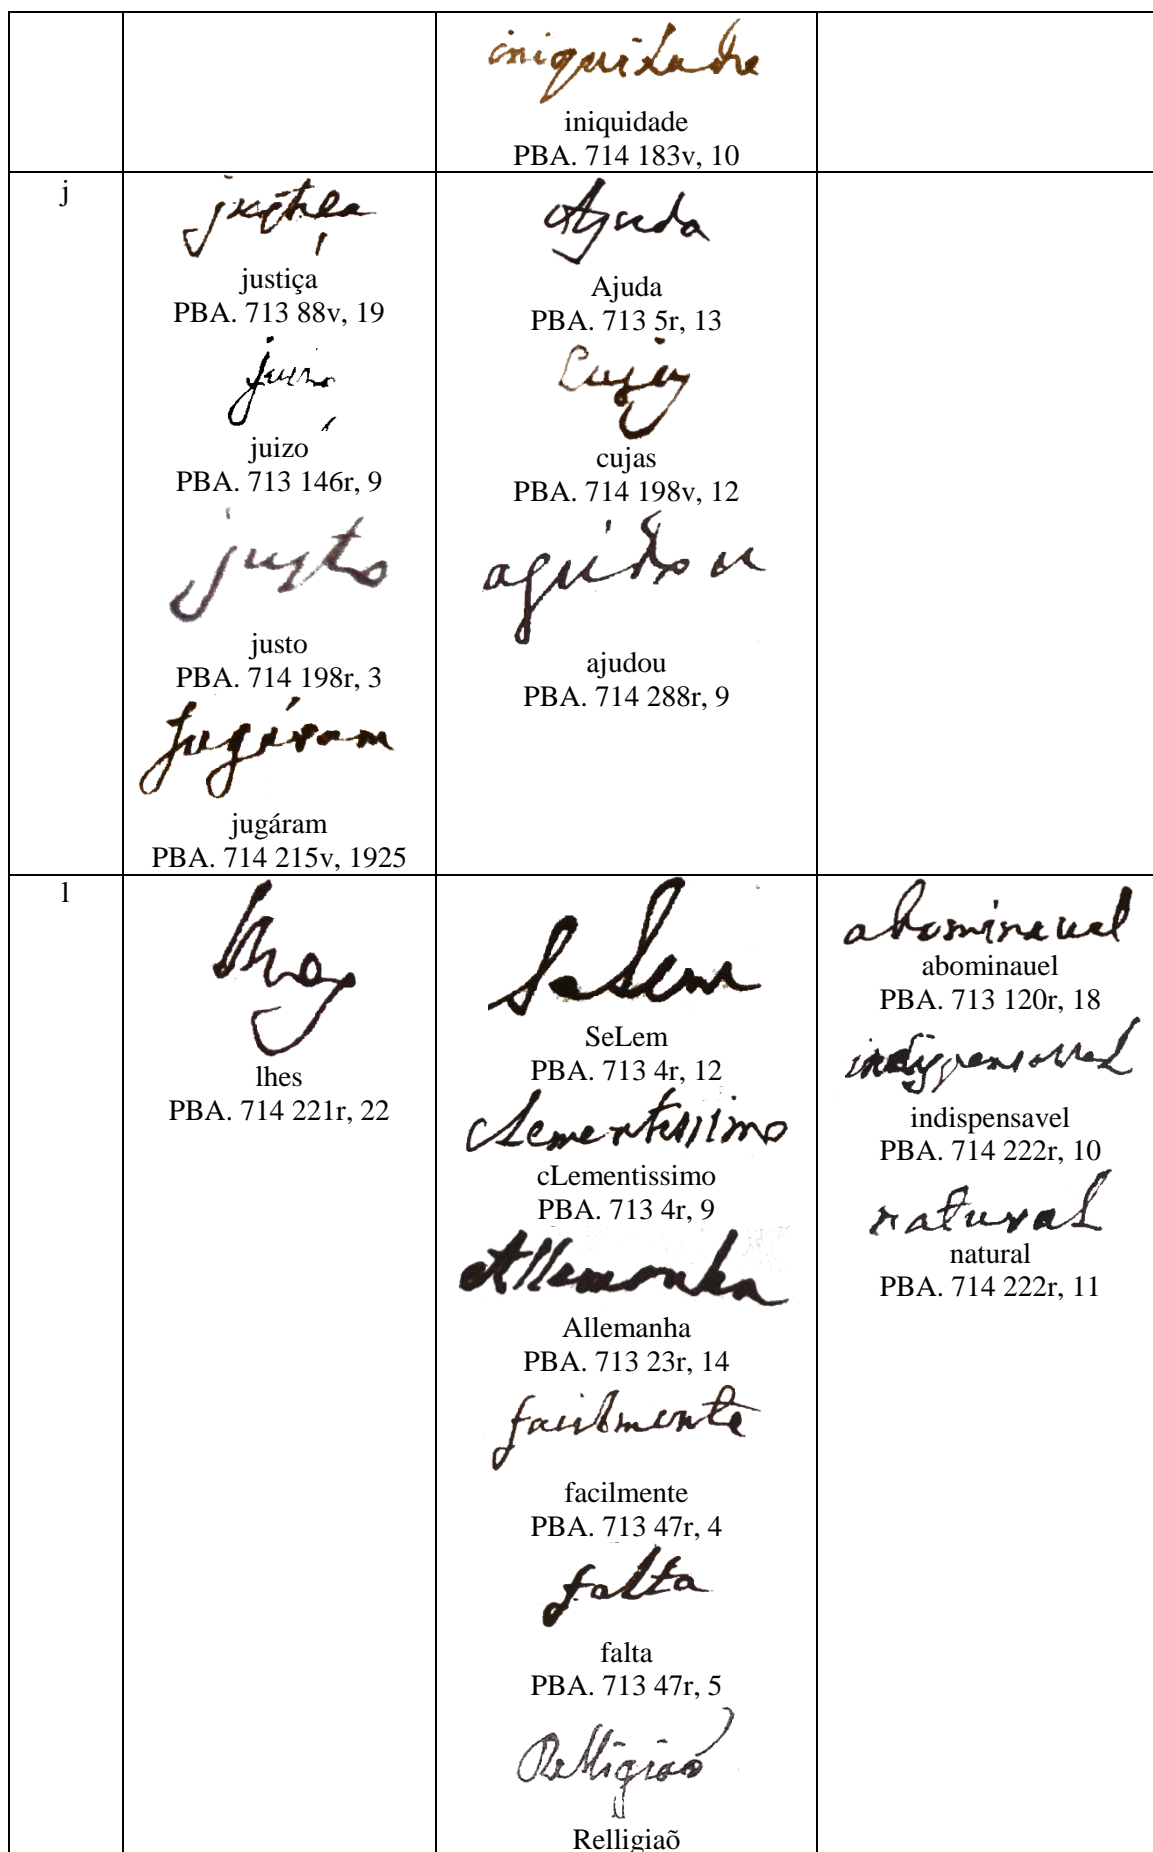 iniquidade
iniquidade
PBA. 714 183v, 10
j
justiça
justiça
PBA. 713 88v, 19
juizo
juizó
PBA. 713 146r, 9
justo
justo
PBA. 714 198r, 3
jugáram
jugáram
PBA. 714 215v, 1925
Ajuda
Ajuda
PBA. 713 5r, 13
cujas
cujas
PBA. 714 198v, 12
ajudou
ajudou
PBA. 714 288r, 9
l
lhes
lhes
PBA. 714 221r, 22
SeLem
SeLem
PBA. 713 4r, 12
cLementissimo
cLementissimo
PBA. 713 4r, 9
Allemanha
Allemanha
PBA. 713 23r, 14
facilmente
facilmente
PBA. 713 47r, 4
falta
falta
PBA. 713 47r, 5
Relligiaõ
Relligiaõ
abominauel
abominauel
PBA. 713 120r, 18
indispensavel
indispensavel
PBA. 714 222r, 10
natural
natural
PBA. 714 222r, 11